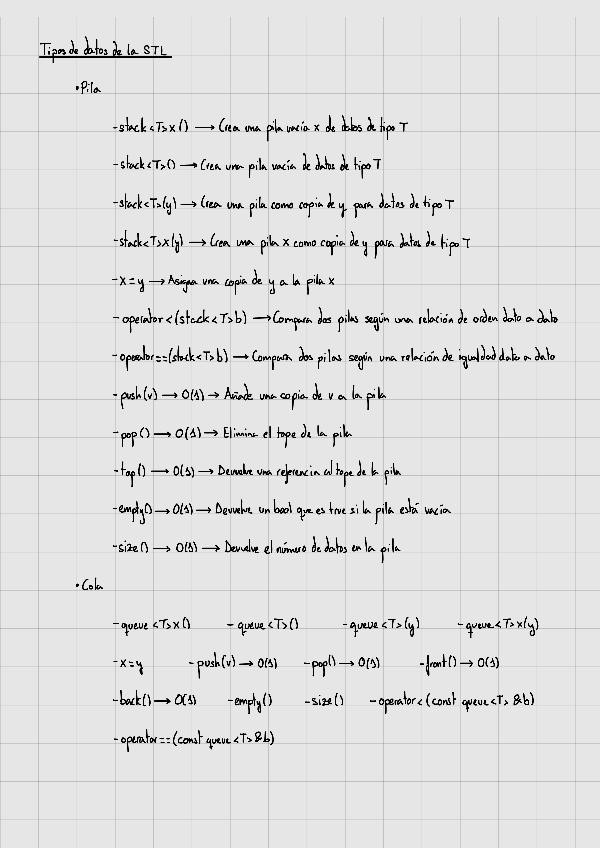 Tipos de datos de la STL
• Pila
- stack<T> x () → Crea una pila vacía x de datos de tipo T
- stack<T>() → Crea una pila vacía de datos de tipo T
- stack<T>(y) → Crea una pila como copia de y para datos de tipo T
- stack<T> x(y) → Crea una pila x como copia de y para datos de tipo T
- x = y → Asigna una copia de y a la pila x
- operator<(stack<T> b) → Compara dos pilas según una relación de orden dato a dato
- operator==(stack<T> b) → Compara dos pilas según una relación de igualdad dato a dato
- push(v) → O(1) → Añade una copia de v a la pila
- pop() → O(1) → Elimina el tope de la pila
- top() → O(1) → Devuelve una referencia al tope de la pila
- empty() → O(1) → Devuelve un bool que es true si la pila está vacía
- size() → O(1) → Devuelve el número de datos en la pila
• Cola
- queue<T> x () - queue<T>() - queue<T>(y) - queue<T> x(y)
- x = y - push(v) → O(1) - pop() → O(1) - front() → O(1)
- back() → O(1) - empty() - size() - operator<(const queue<T> &b)
- operator==(const queue<T> &b)